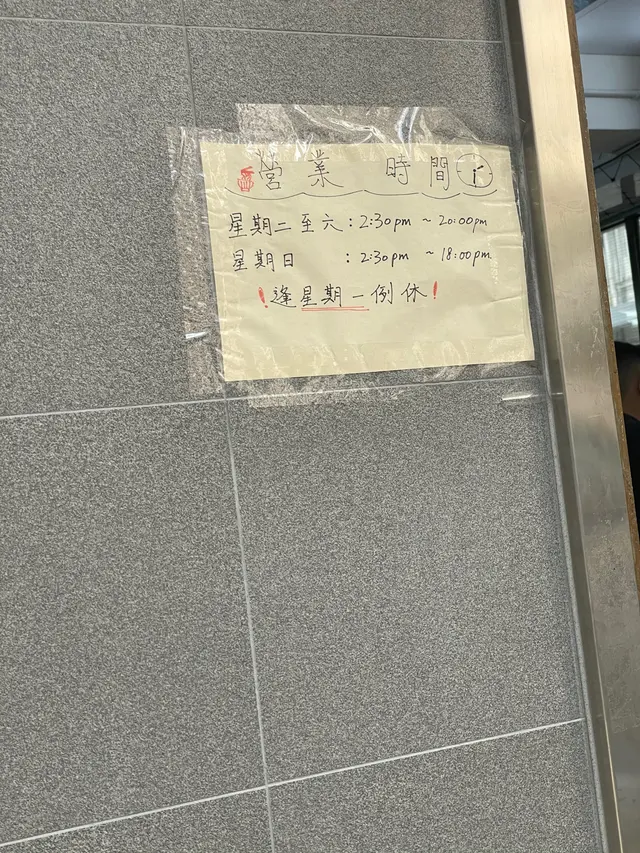 營業 時間
星期二至六：2:30pm ~ 20:00pm
星期日 ：2:30pm ~ 18:00pm
！逢星期一例休！